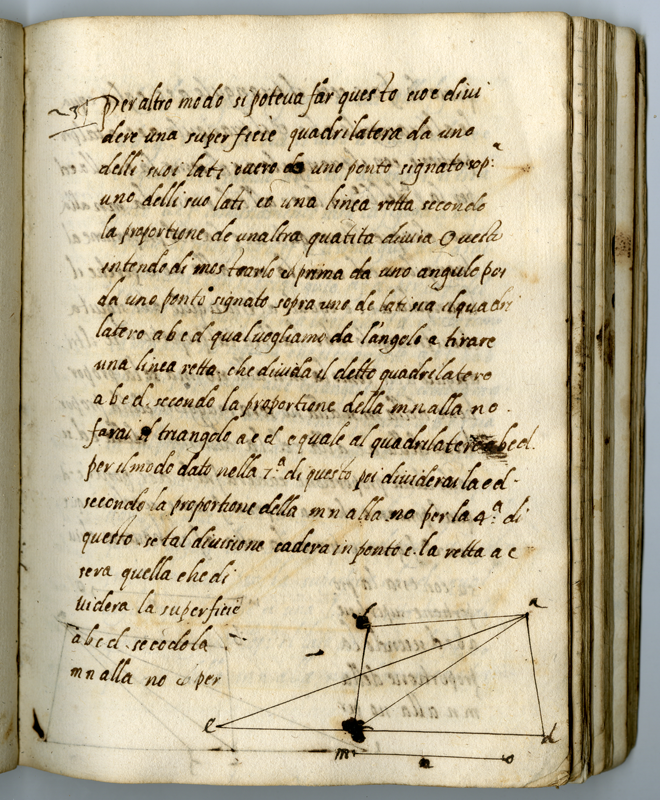 31 Per altro modo si poteva far questo cioe divi
dere una superficie quadrilatera da uno
delli suoi lati overo da uno ponto signato sop.ª
uno delli suo lati cō una linea retta secondo
la proportione de unaltra quātita divisa Questo
intendo di mostrarlo et prima da uno angulo poi
da uno ponto signato sopra uno de lati sia il quadri
latero a b c d qual vogliamo da l'angolo a tirare
una linea retta che divida il detto quadrilatero
a b c d. secondo la proportione della m n alla n o.
farai il triangolo a e d equale al quadrilatero a b c d.
per il modo dato nella 7.ª di questo poi dividerai la e d.
secondo la proportione della m n alla no per la 4.ª di
questo se tal divisione cadera in ponto c. la retta a c
sera quella che di
videra la superficie
a b c d secōdo la
m n alla no et per
b a
e d
m n o